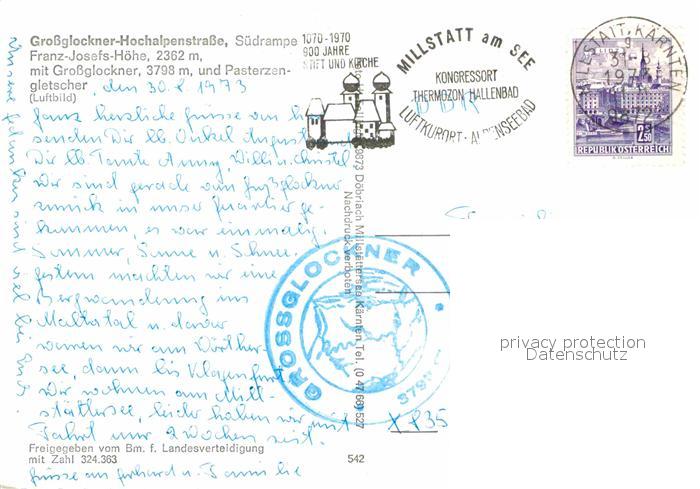 Großglockner-Hochalpenstraße, Südrampe
Franz-Josefs-Höhe, 2362 m,
mit Großglockner, 3798 m, und Pasterzen-
gletscher
(Luftbild)
den 30.8.1973
ganz herzliche Grüsse von hier
senden Dir lb. Onkel August
Dir lb. Tante Anny, Willi u. Christel
Wir sind gerade vom Großglockner
zurück in unser Quartier ge-
kommen, es war einmalig.
Sommer, Sonne u. Schnee,
gestern machten wir eine
Bergwanderung ins
Maltatal u. davor
waren wir am Wörther-
see, dann bis Klagenfurt
Wir wohnen am Mill-
stättersee, leider haben wir mit
Fahrt nur 2 Wochen Zeit.
Freigegeben vom Bm. f. Landesverteidigung
mit Zahl 324.363
542
Grüsse an Gerhard u. Familie
Unsere Gedanken sind viel bei Euch.
1070-1970
900 JAHRE
STIFT UND KIRCHE
MILLSTATT am SEE
KONGRESSORT
THERMOZON HALLENBAD
LUFTKURORT - ALPENSEEBAD
MILLSTATT, KÄRNTEN
9872
2.50
REPUBLIK ÖSTERREICH
9873 Döbriach Millstättersee Kärnten Tel. (0 47 66) 527
Nachdruck verboten
GROSSGLOCKNER
3798 m
privacy protection
Datenschutz